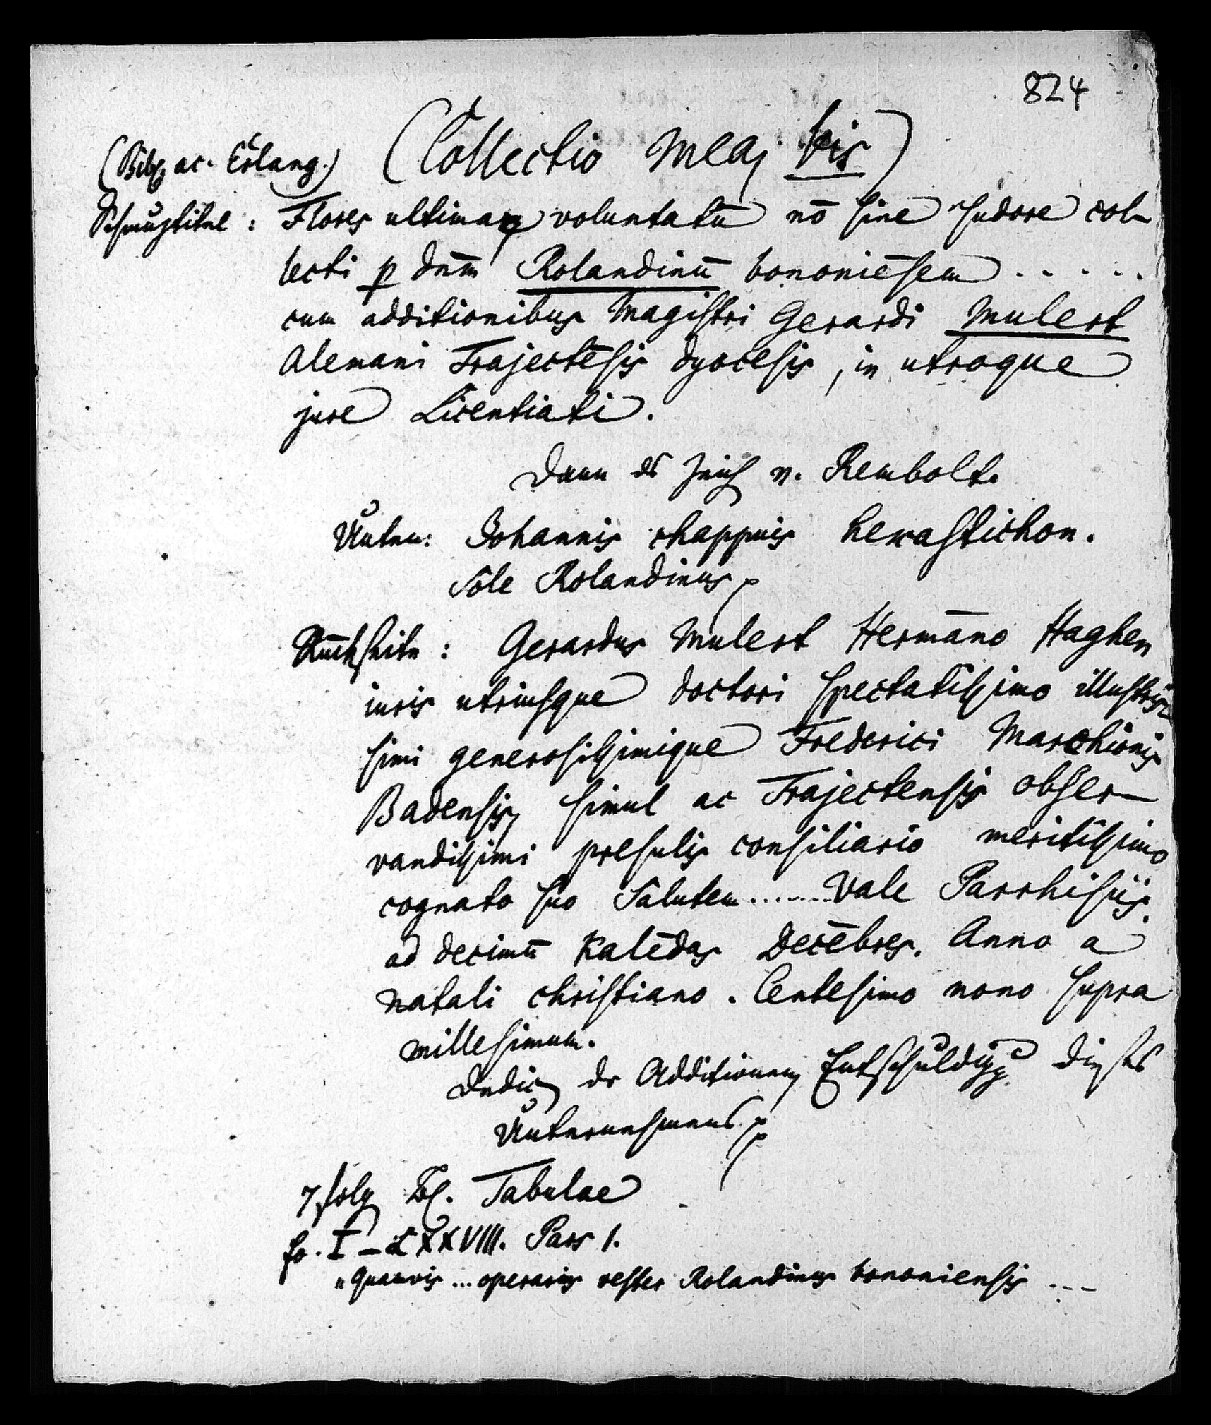 824
(Bibl. ac. Erlang.) (Collectio mea, bis)
Schmutztitel : Flores ultimaꝝ voluntatū nō sine sudore col-
lecti p̲ dn̄m Rolandinū bononiēsem . . . . .
cum additionibus Magistri Gerardi Mulert
Alemani Trajectēsis dyocesis, in utroque
jure Licentiati.
Dann das Zeich v. Rembolt.
Unten: Johannis chappuis hexastichon.
Sole Rolandinus
Rückseite : Gerardus Mulert Hermāno Haghen
iuris utriusque doctori spectatissimo illustris-
simi generosissimique Frederici Marchionis
Badensis, simul ac Trajectensis obser-
vandissimi presulis consiliario meritissimo
cognato suo Salutem ....... Vale Parrhisiis.
ad decimū Kalēdas Decēbres. Anno a
natali christiano. Centesimo nono supra
millesimum.
Dedic. der Additionen, Entschuldigg. dieses
Unternehmens
7 folg. Bl. Tabulae
fo. I – LXXVIII. Pars 1.
"Quamvis ... operarius vester Rolandinus bononiensis ---